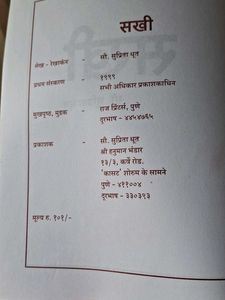 सखी
लेख - रेखांकन - सौ. सुप्रिता धूत
प्रथम संस्करण - १९९९
सभी अधिकार प्रकाशकाधिन
मुखपृष्ठ, मुद्रक - राज प्रिंटर्स, पुणे
दूरभाष - ४४५४७६५
प्रकाशक - सौ. सुप्रिता धूत
श्री हनुमान भंडार
१३/३, कर्वे रोड.
'कासट' शोरुम के सामने
पुणे - ४११००४
दूरभाष - ३३०३९३
मूल्य रु. १०१/-